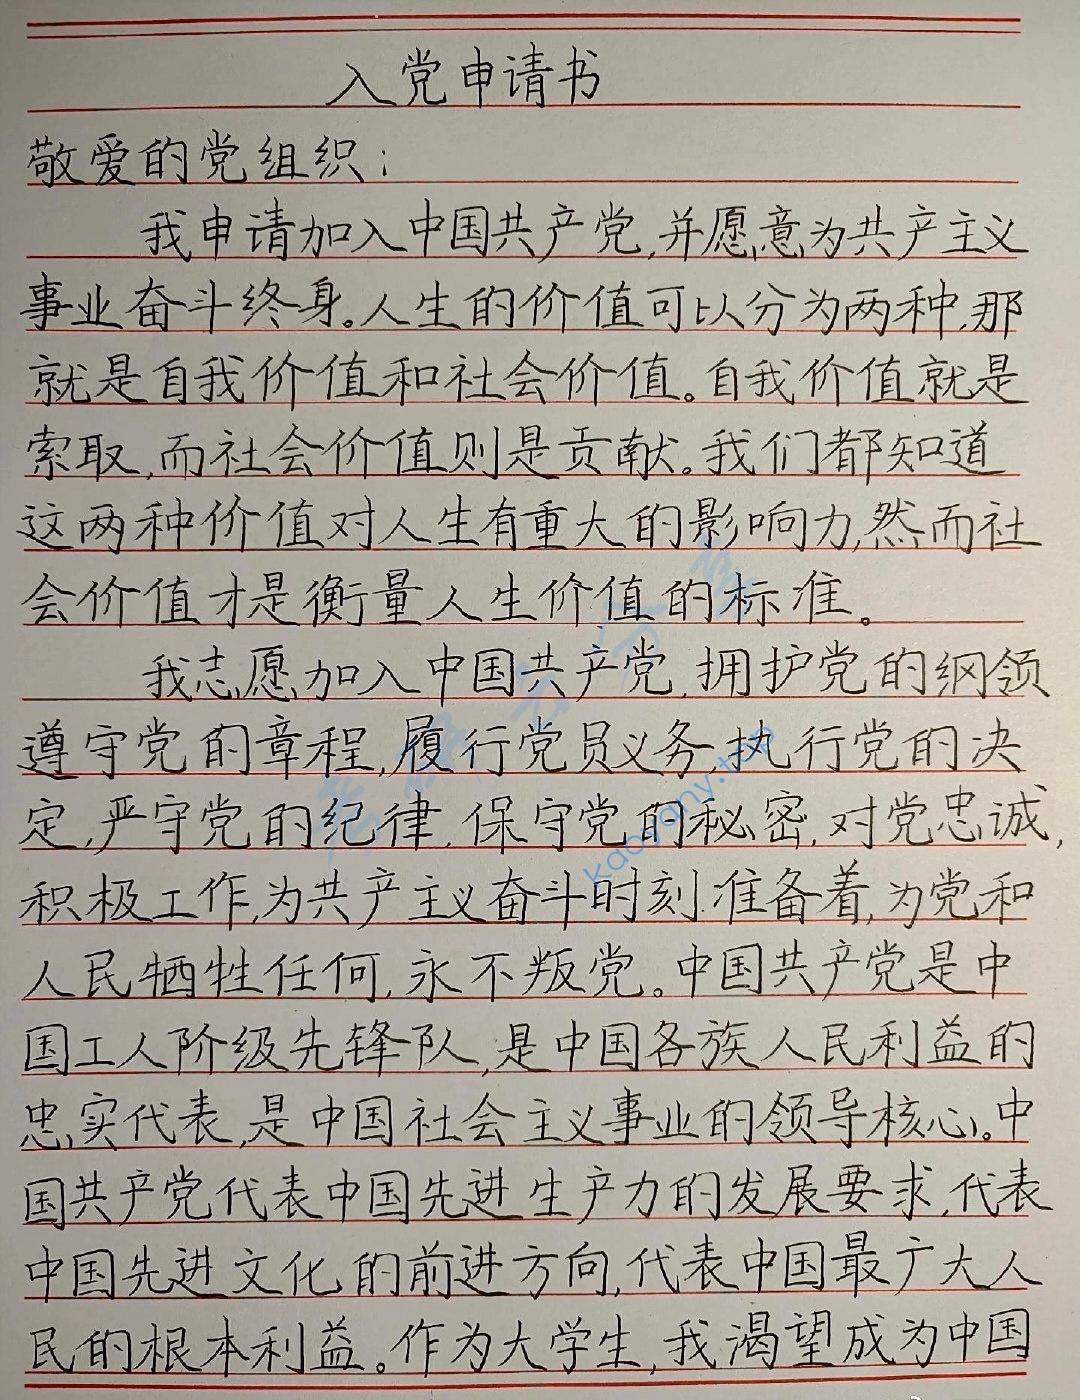 入党申请书
敬爱的党组织:
我申请加入中国共产党,并愿意为共产主义
事业奋斗终身。人生的价值可以分为两种,那
就是自我价值和社会价值。自我价值就是
索取,而社会价值则是贡献。我们都知道
这两种价值对人生有重大的影响力,然而社
会价值才是衡量人生价值的标准。
我志愿加入中国共产党,拥护党的纲领
遵守党的章程,履行党员义务,执行党的决
定,严守党的纪律,保守党的秘密,对党忠诚,
积极工作,为共产主义奋斗时刻准备着,为党和
人民牺牲任何,永不叛党。中国共产党是中
国工人阶级先锋队,是中国各族人民利益的
忠实代表,是中国社会主义事业的领导核心。中
国共产党代表中国先进生产力的发展要求,代表
中国先进文化的前进方向,代表中国最广大人
民的根本利益。作为大学生,我渴望成为中国
kaoyany.top